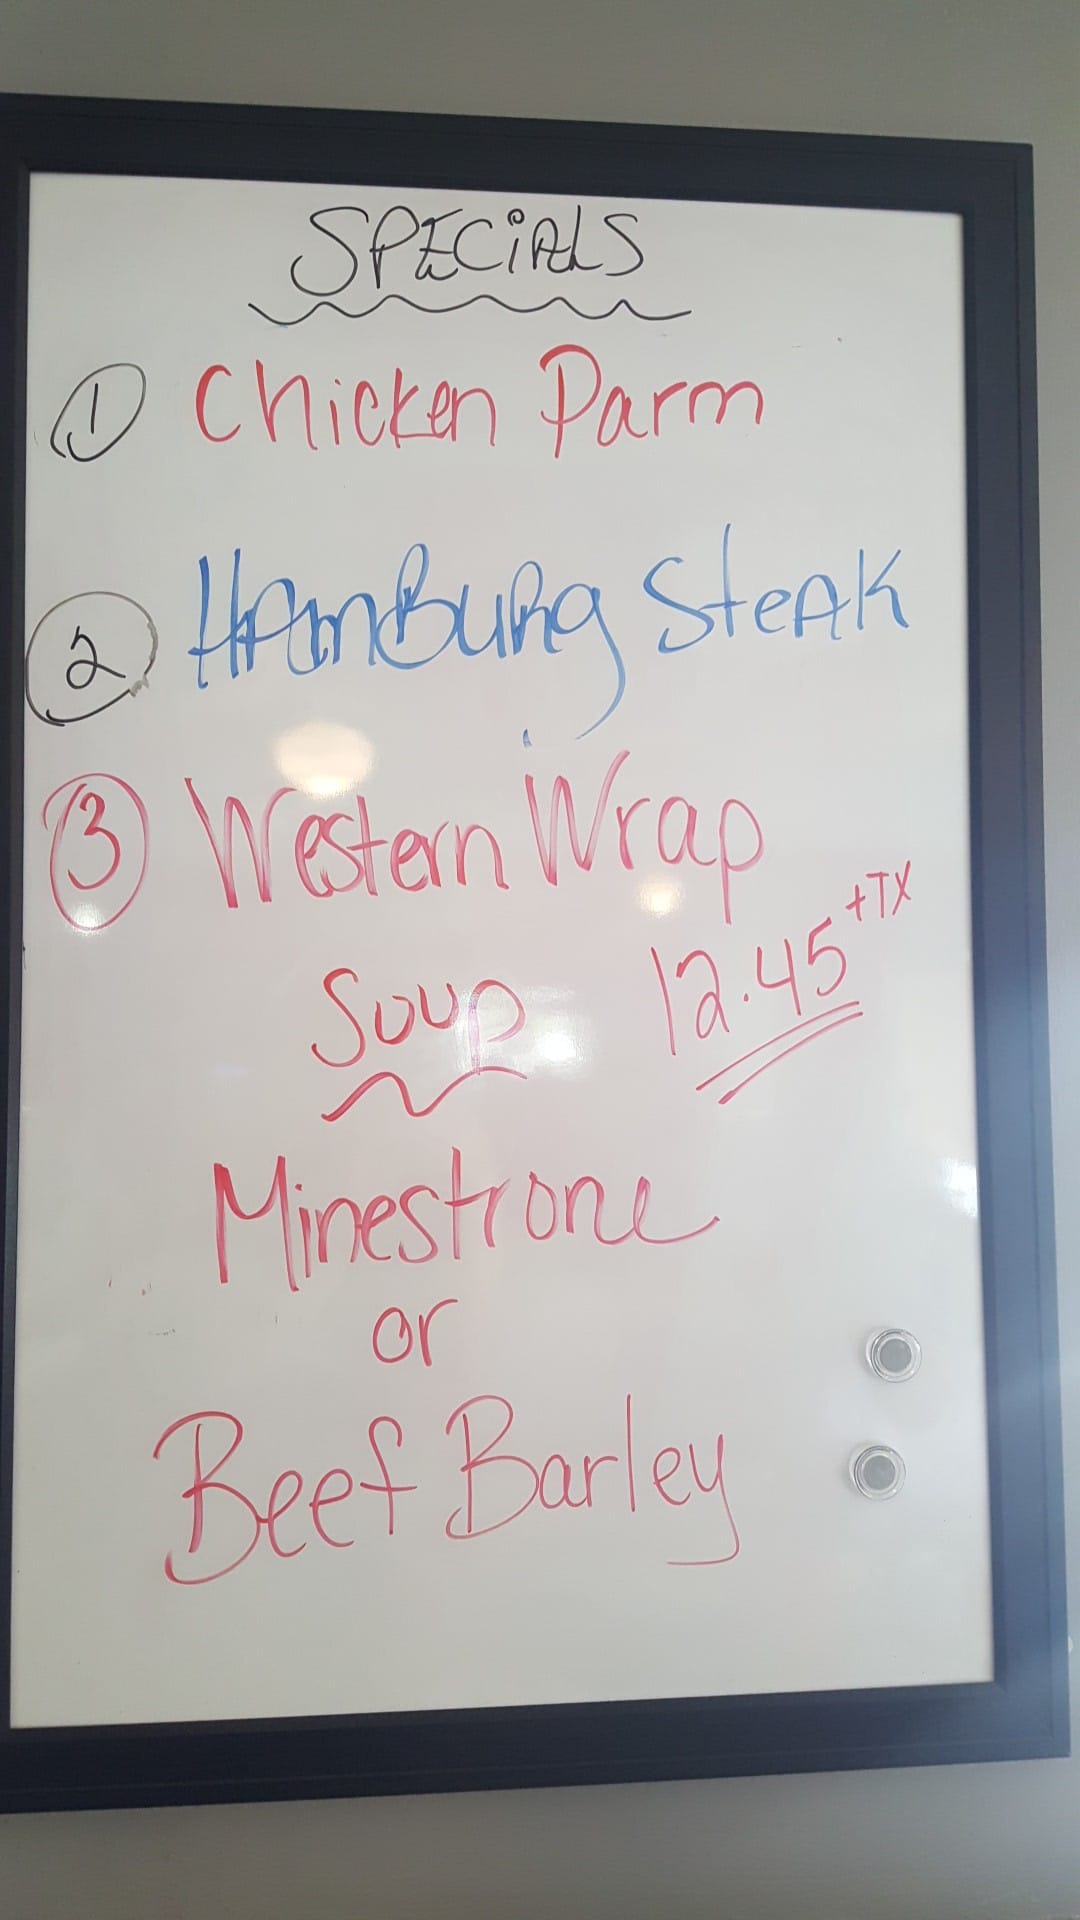 SPECiALS
1 Chicken Parm
2 HAmBuRg SteAK
3 Western Wrap
Soup 12.45 +TX
Minestrone
or
Beef Barley